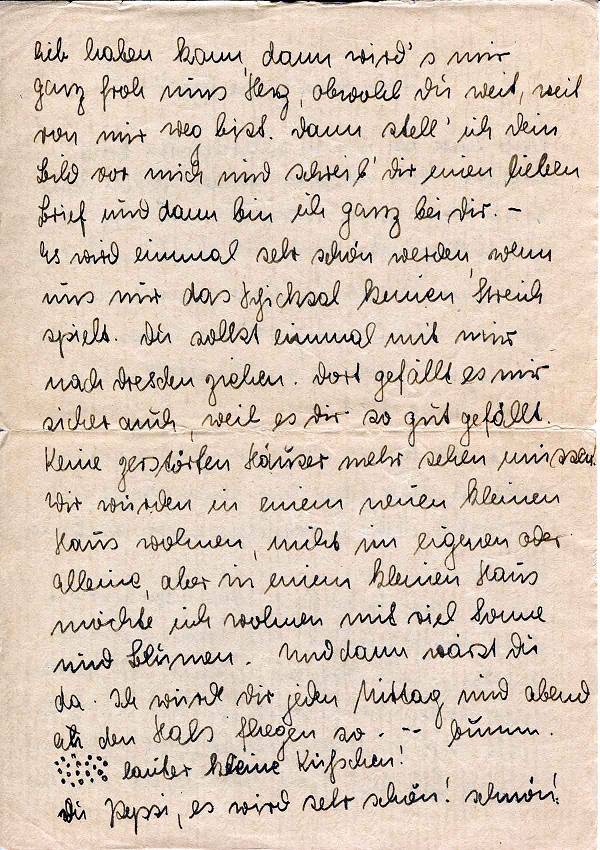 lieb haben kann, dann wird's mir
ganz froh ums Herz, obwohl Du weit, weit
von mir weg bist. Dann stell' ich Dein
Bild vor mich und schreib' Dir einen lieben
Brief und dann bin ich ganz bei Dir. –
Es wird einmal sehr schön werden, wenn
uns nur das Schicksal keinen Streich
spielt. Du sollst einmal mit mir
nach Dresden ziehen. Dort gefällt es mir
sicher auch, weil es Dir so gut gefällt.
Keine zerstörten Häuser mehr sehen müssen.
Wir würden in einem neuen kleinen
Haus wohnen, nicht im eigenen oder
alleine, aber in einem kleinen Haus
möchte ich wohnen mit viel Sonne
und Blumen. Und dann wärst Du
da. Ich würde Dir jeden Mittag und abend
an den Hals fliegen so. -- bumm.
lauter kleine Küßchen!
Du Peppi, es wird sehr schön! schön!